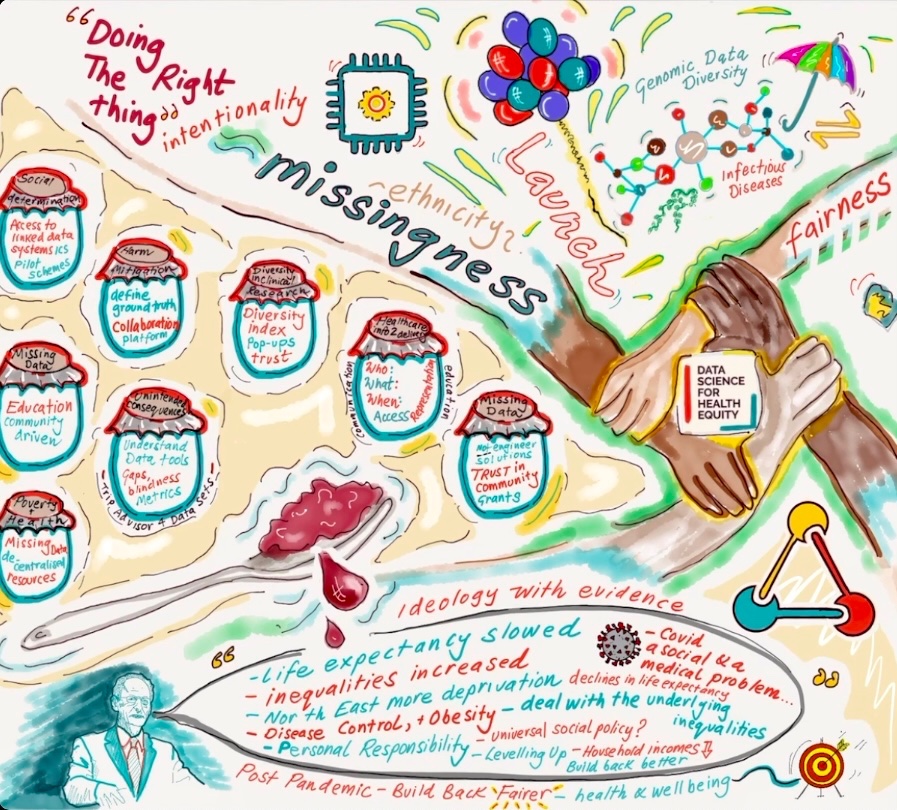 "Doing
The Right
thing"
intentionality
missingness
ethnicity?
Launch
Genomic Data
Diversity
Infectious
Diseases
fairness
Social
determination
Access to
linked data
systems ICS
Pilot
schemes
Harm
Mitigation
define
ground truth
Collaboration
platform
Diversity
in clinical
Research
Diversity
index
Pop-ups
trust
Healthcare
info 2 deliver
Who:
What:
When:
Access
Representation
communication
education
Missing
Data
Education
community
driven
Unintended
consequences
Understand
Data tools
Gaps,
blindness
Metrics
-Trip Advisor 4 Data sets-
Missing
Data
Not engineer
solutions
TRUST in
community
grants
Poverty
+
Health
Missing Data
de-centralised
resources
DATA
SCIENCE
FOR
HEALTH
EQUITY
Ideology with evidence
"
- Life expectancy slowed
- inequalities increased
- North East more deprivation
- Disease Control, + Obesity
- Personal Responsibility
- Covid
a social & a
medical problem...
declines in life expectancy
- deal with the underlying
inequalities
- universal social policy?
- Levelling Up
- Household incomes
Build back better
"
Post Pandemic - Build Back Fairer - health & wellbeing